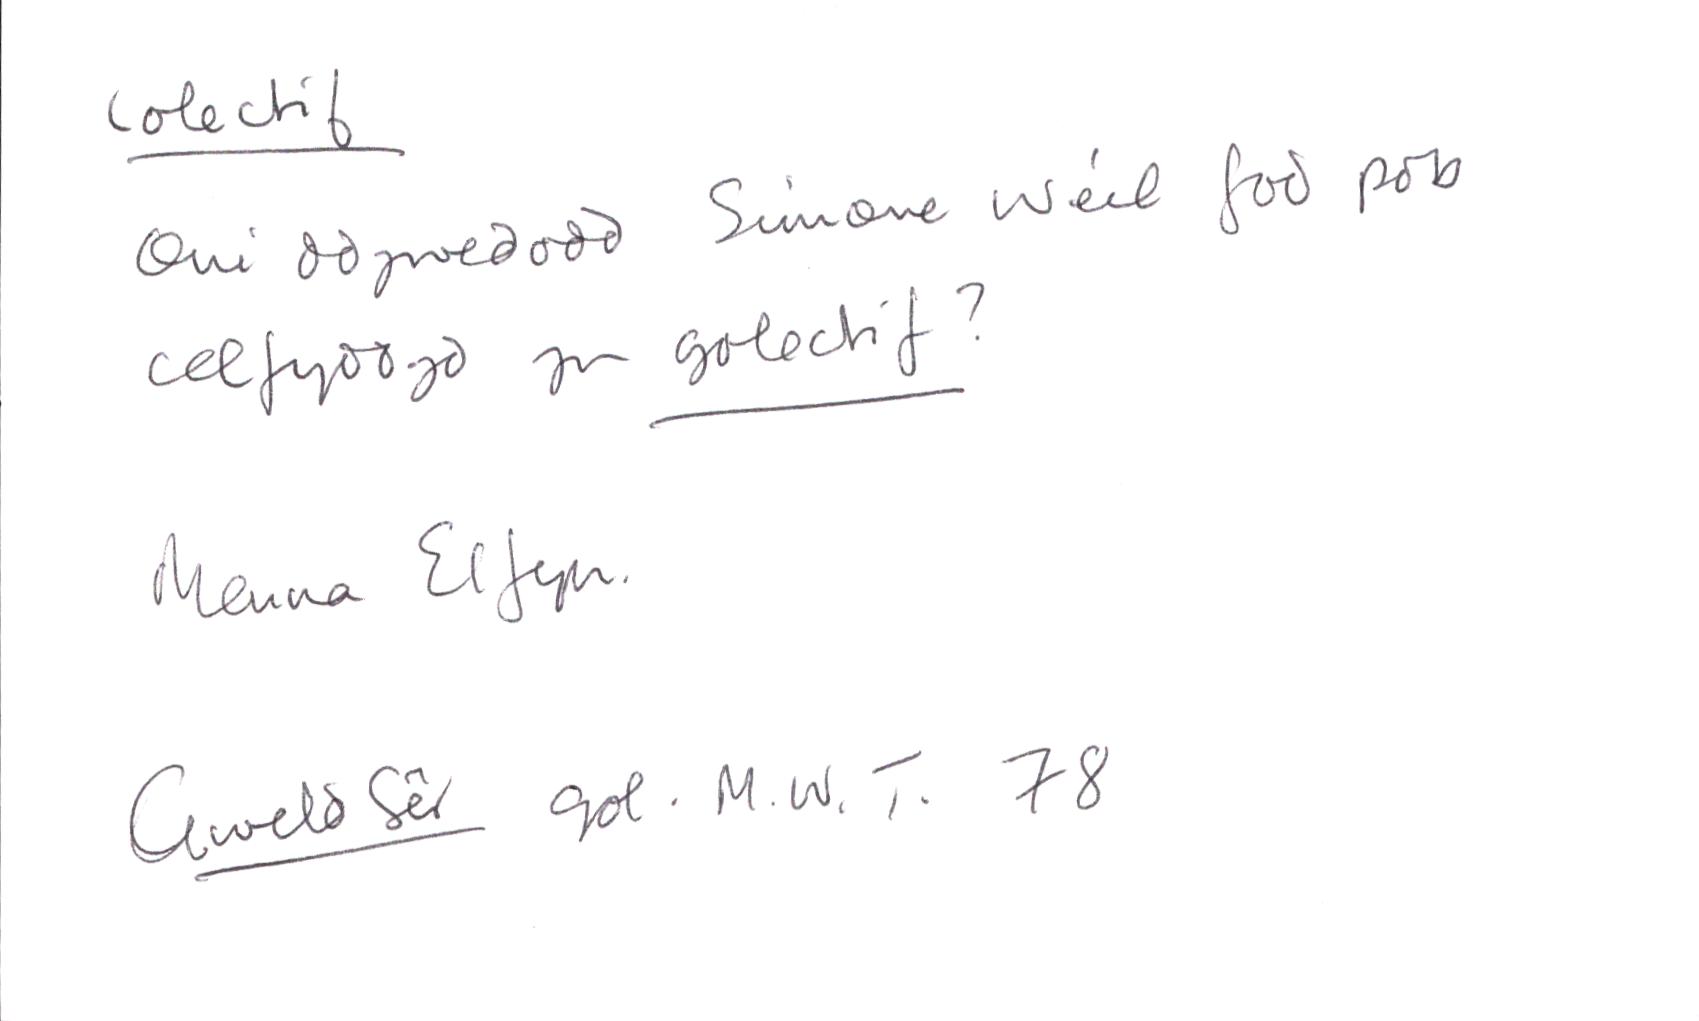 colectif
Oni ddywedodd Simone Wéil fod pob
celfyddyd yn golectif?
Menna Elfyn.
Gweld Sêr gol. M.W.T. 78